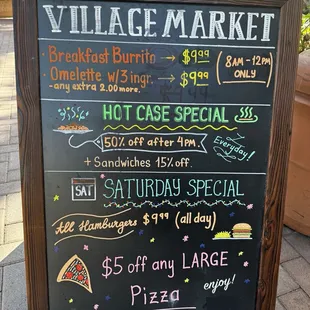 VILLAGE MARKET
Breakfast Burrito → $9.99
Omelette w/3 ingr. → $9.99
-any extra 2.00 more.
(8AM-12PM
ONLY)
HOT CASE SPECIAL
50% off after 4PM.
Everyday!
+ Sandwiches 15% off.
SAT
SATURDAY SPECIAL
All Hamburgers $9.99 (all day)
$5 off any LARGE
Pizza
enjoy!